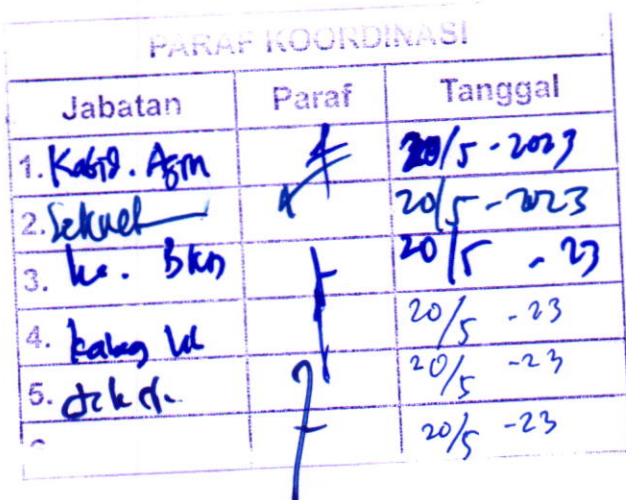 PARAF KOORDINASI
Jabatan Paraf Tanggal
1. Kabid. Adm 20/5 - 2023
2. Sekret 20/5 - 2023
3. Ka. BKD 20/5 - 23
4. Kabag 20/5 - 23
5. 20/5 - 23
20/5 - 23